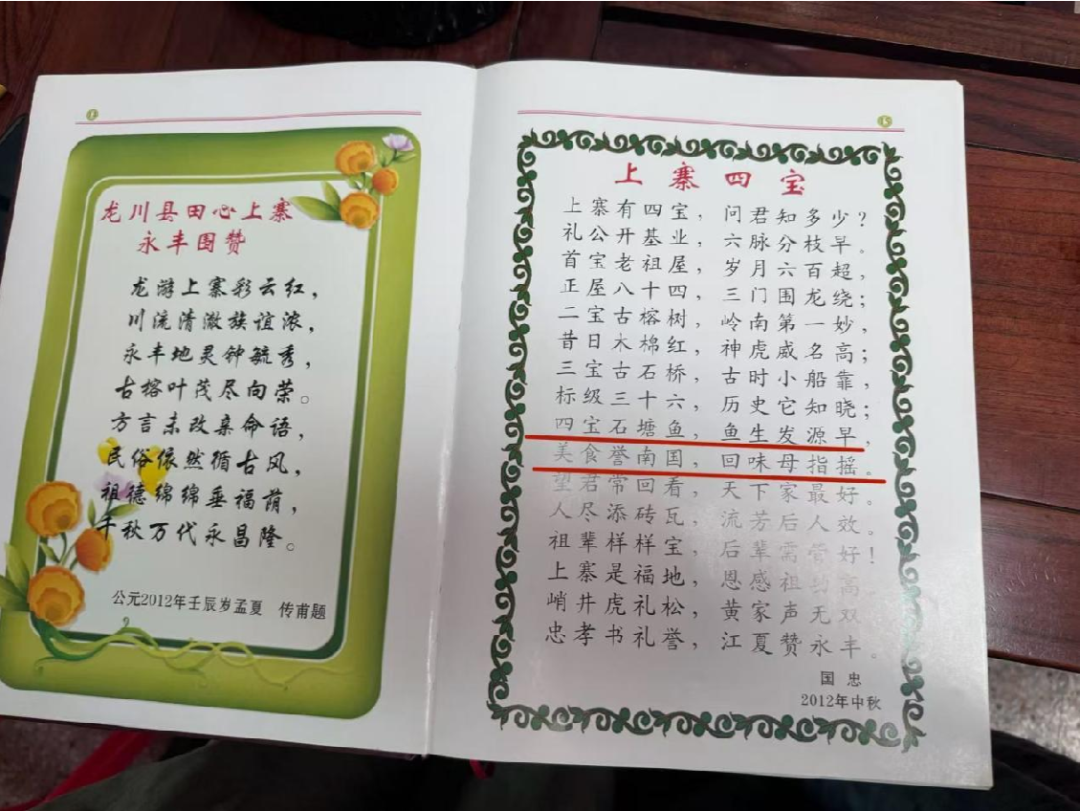 龙川县田心上寨
永丰围赞
龙游上寨彩云红，
川流清澈族谊浓，
永丰地灵钟毓秀，
古榕叶茂尽向荣。
方言未改亲命语，
民俗依然循古风，
祖德绵绵垂福荫，
千秋万代永昌隆。
公元2012年壬辰岁孟夏 传甫题
上寨四宝
上寨有四宝，问君知多少？
礼公开基业，六脉分枝早。
首宝老祖屋，岁月六百超，
正屋八十四，三门围龙绕；
二宝古榕树，岭南第一妙，
昔日木棉红，神虎威名高；
三宝古石桥，古时小船靠，
标级三十六，历史它知晓；
四宝石塘鱼，鱼生发源早，
美食誉南国，回味母指摇。
望君常回看，天下家最好。
人尽添砖瓦，流芳后人效。
祖辈样样宝，后辈需管好！
上寨是福地，恩感祖功高
峭井虎礼松，黄家声无双
忠孝书礼誉，江夏赞永丰。
国忠
2012年中秋